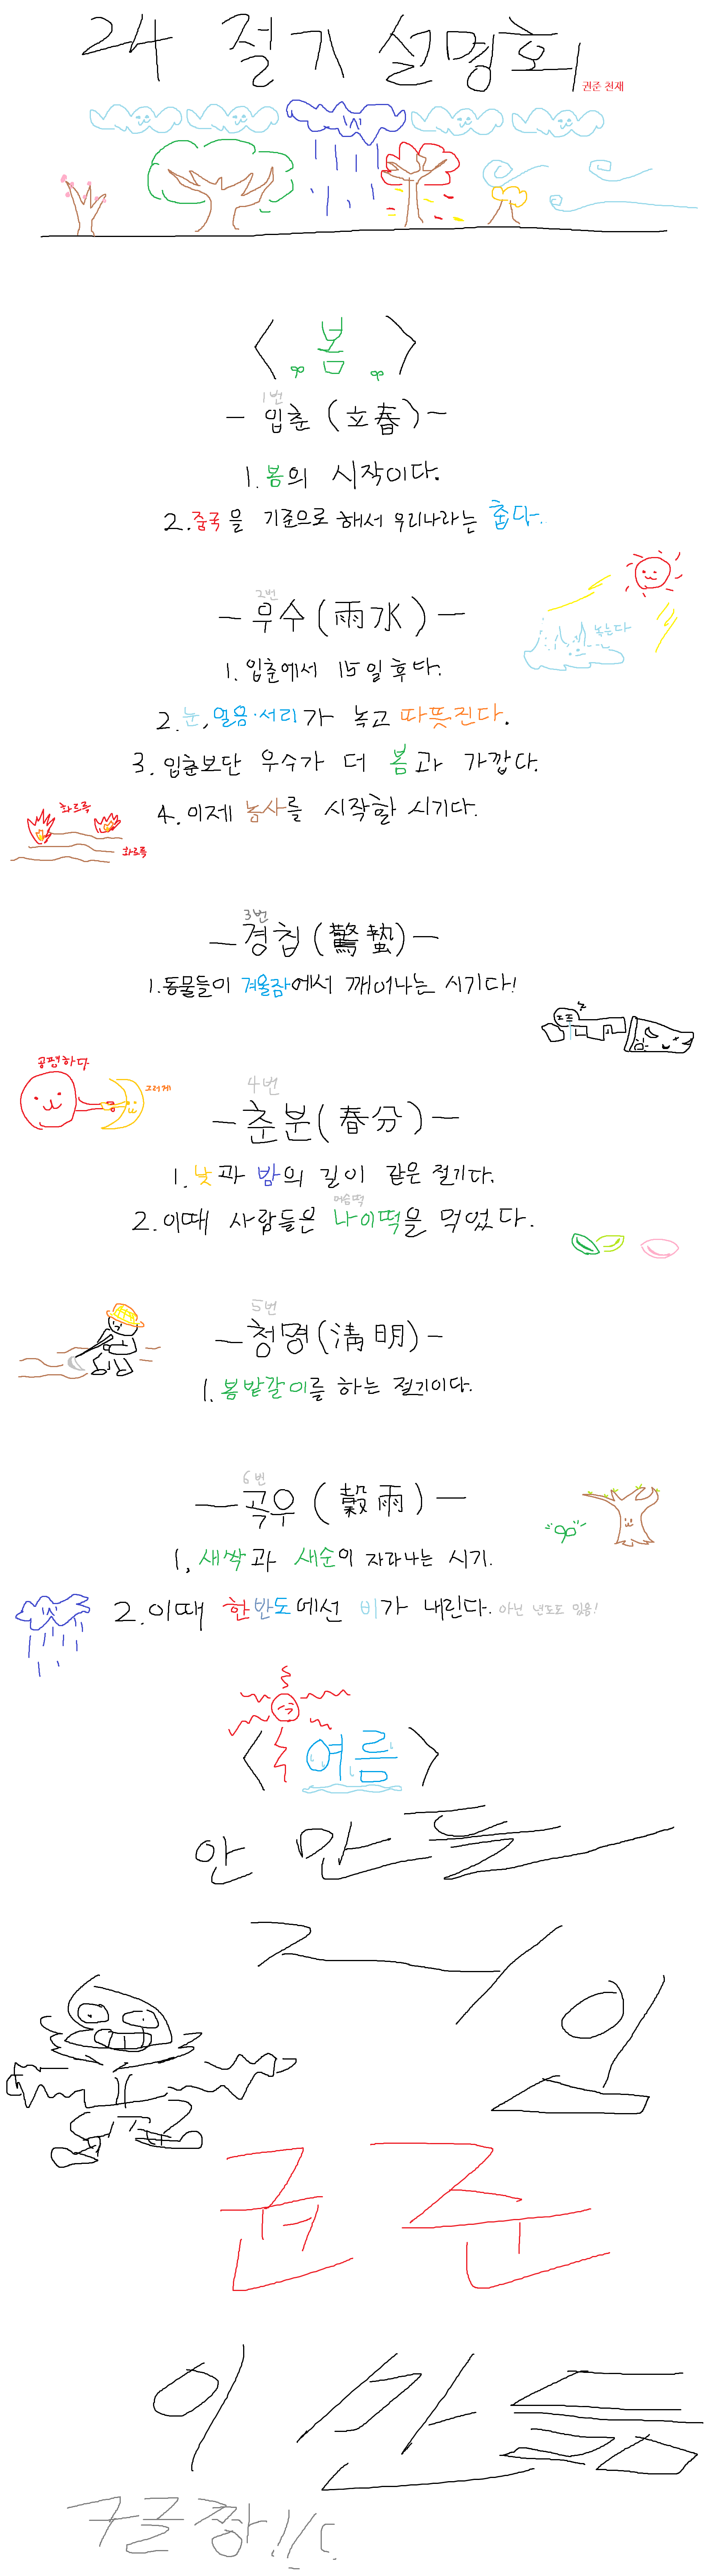 24 절기 설명회
권준 천재
< 봄 >
1번
- 입춘 (立春) -
1. 봄의 시작이다.
2. 중국을 기준으로 해서 우리나라는 춥다.
2번
- 우수 (雨水) -
녹는다
1. 입춘에서 15일 후다.
2. 눈, 얼음·서리가 녹고 따뜻진다.
3. 입춘보단 우수가 더 봄과 가깝다.
4. 이제 농사를 시작할 시기다.
화르륵
화르륵
3번
- 경칩 (驚蟄) -
1. 동물들이 겨울잠에서 깨어나는 시기다!
z
공평하다
그러게
4번
- 춘분 (春分) -
1. 낮과 밤의 길이 같은 절기다.
머슴떡
2. 이때 사람들은 나이떡을 먹었다.
5번
- 청명 (淸明) -
1. 봄밭갈이를 하는 절기이다.
6번
- 곡우 (穀雨) -
1. 새싹과 새순이 자라나는 시기.
2. 이때 한반도에선 비가 내린다. 아닌 년도도 있음!
< 여름 >
안 만듦
제인
권준
이 만듦
구글짱!!